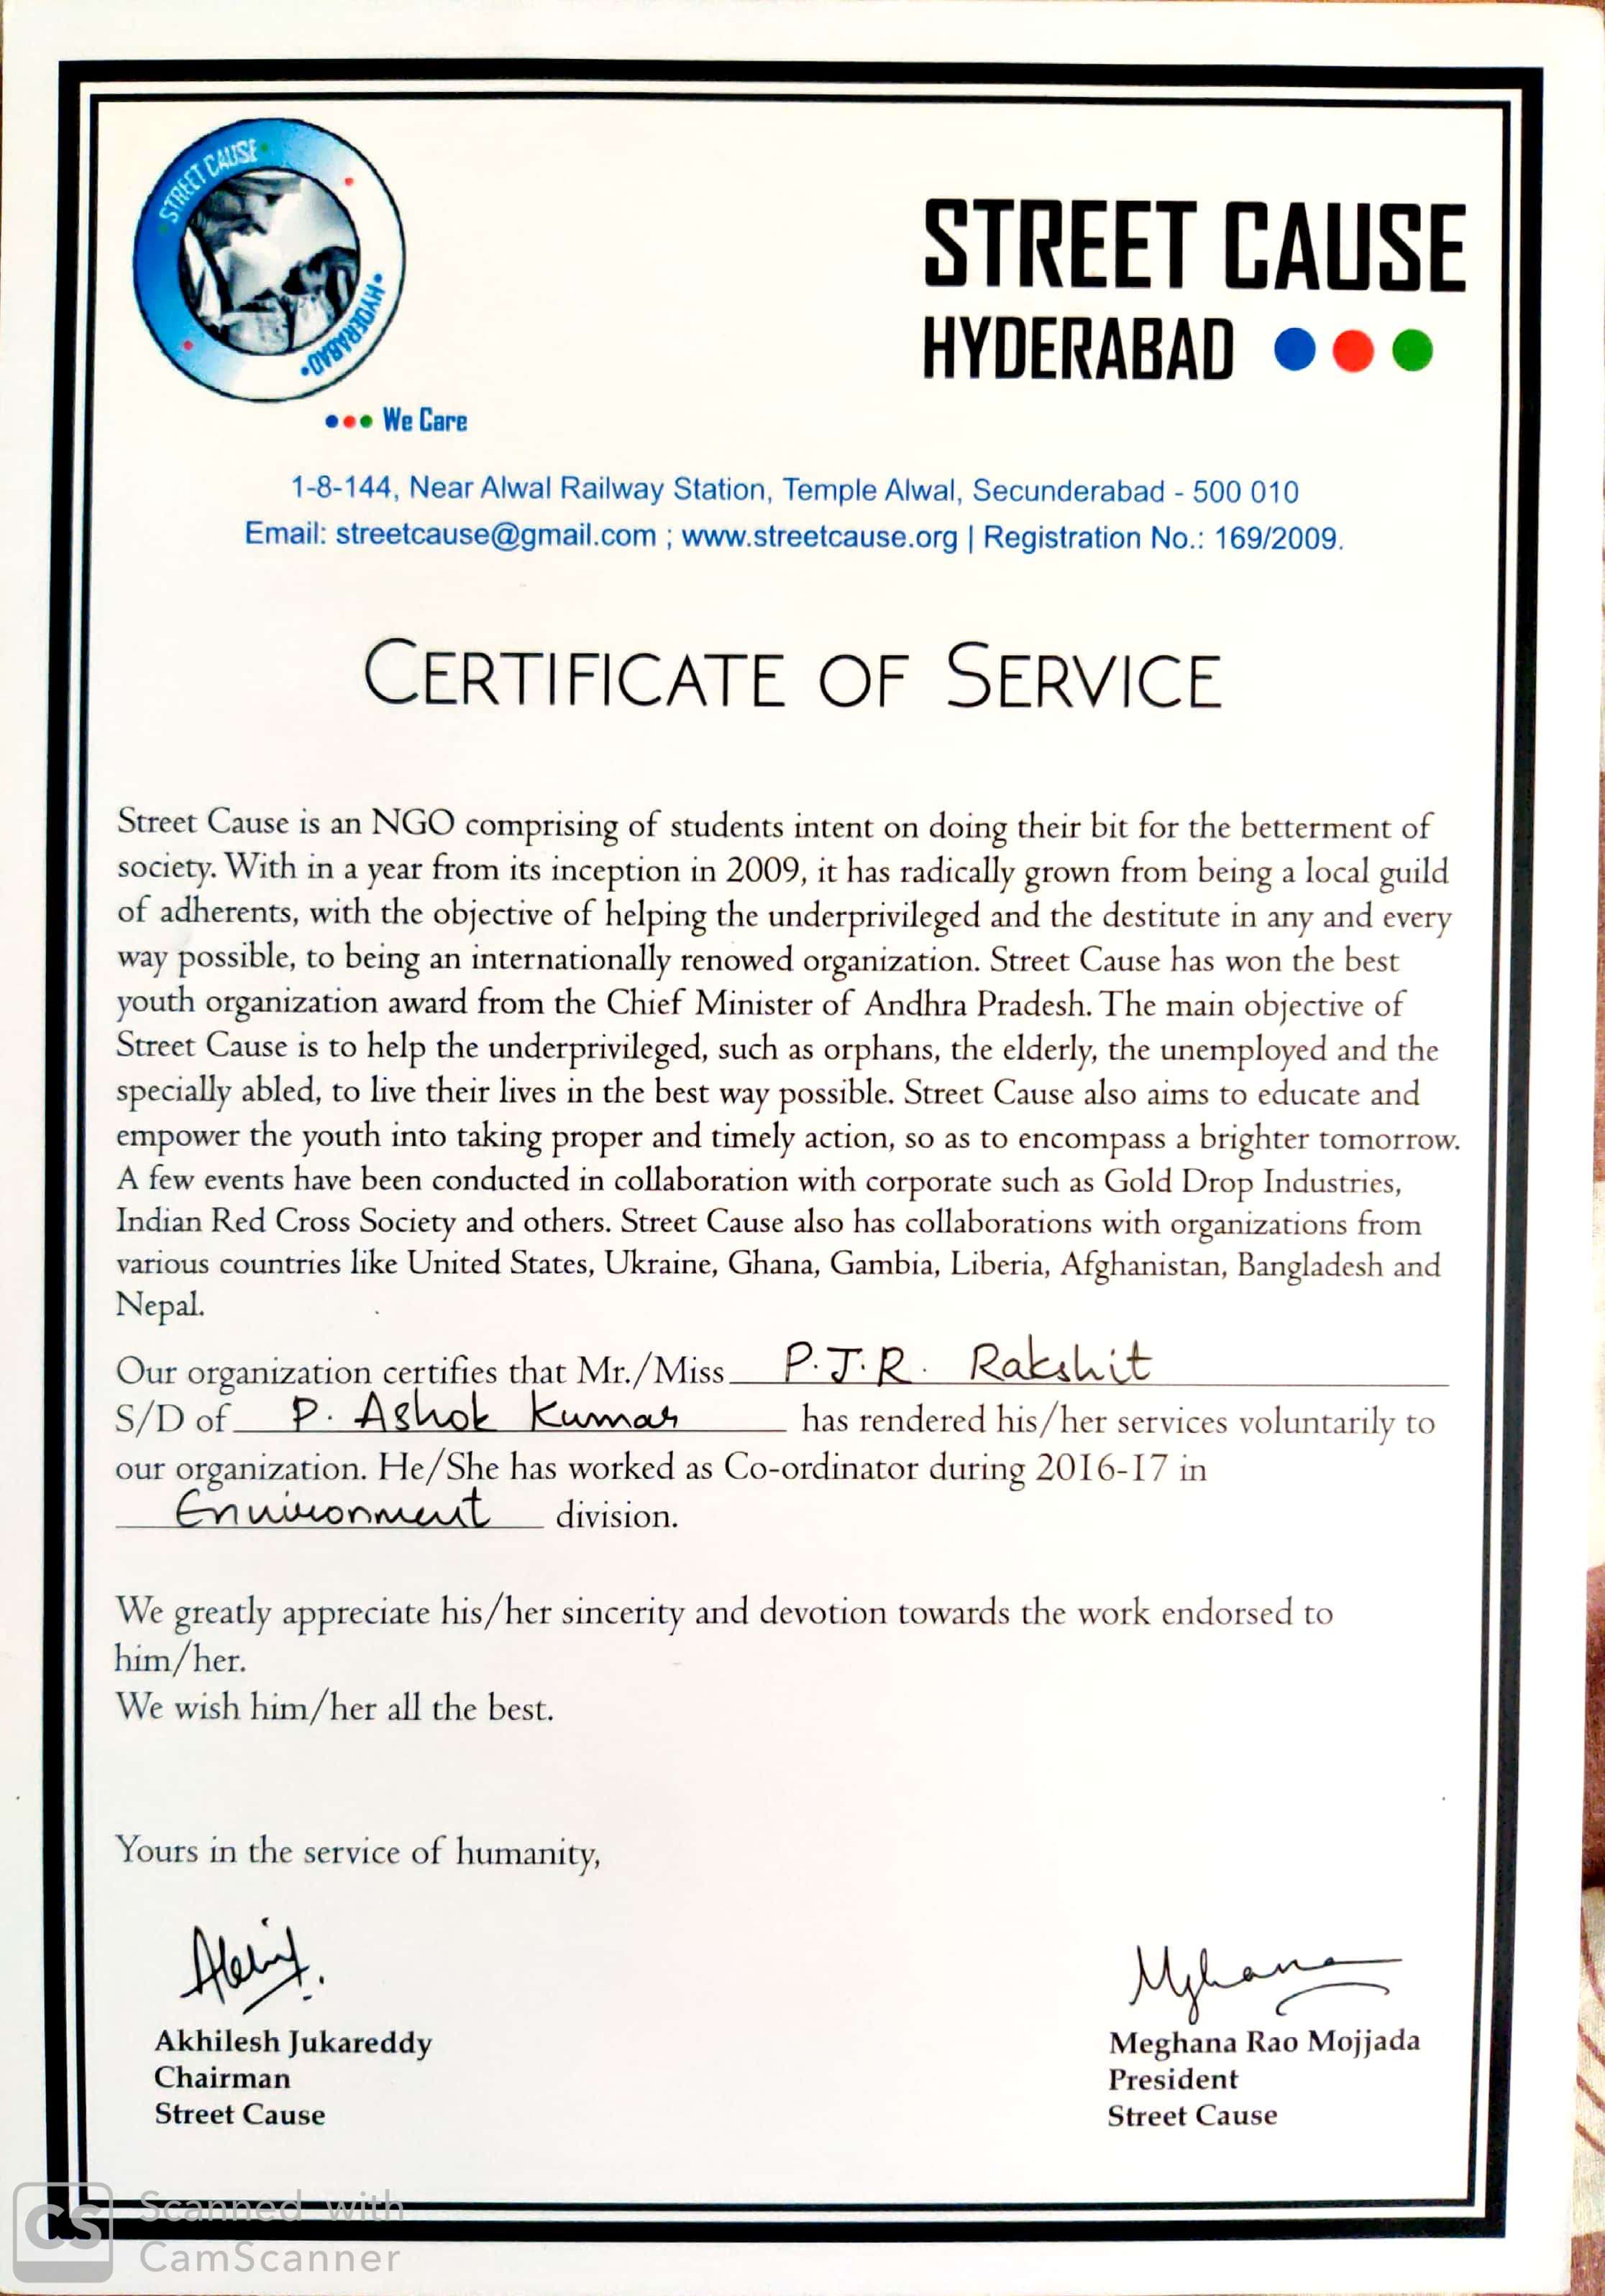 STREET CAUSE
HYDERABAD
STREET CAUSE
HYDERABAD
We Care
1-8-144, Near Alwal Railway Station, Temple Alwal, Secunderabad - 500 010
Email: streetcause@gmail.com ; www.streetcause.org | Registration No.: 169/2009.
CERTIFICATE OF SERVICE
Street Cause is an NGO comprising of students intent on doing their bit for the betterment of
society. With in a year from its inception in 2009, it has radically grown from being a local guild
of adherents, with the objective of helping the underprivileged and the destitute in any and every
way possible, to being an internationally renowed organization. Street Cause has won the best
youth organization award from the Chief Minister of Andhra Pradesh. The main objective of
Street Cause is to help the underprivileged, such as orphans, the elderly, the unemployed and the
specially abled, to live their lives in the best way possible. Street Cause also aims to educate and
empower the youth into taking proper and timely action, so as to encompass a brighter tomorrow.
A few events have been conducted in collaboration with corporate such as Gold Drop Industries,
Indian Red Cross Society and others. Street Cause also has collaborations with organizations from
various countries like United States, Ukraine, Ghana, Gambia, Liberia, Afghanistan, Bangladesh and
Nepal.
Our organization certifies that Mr./Miss P.J.R. Rakshit
S/D of P. Ashok Kumar has rendered his/her services voluntarily to
our organization. He/She has worked as Co-ordinator during 2016-17 in
Environment division.
We greatly appreciate his/her sincerity and devotion towards the work endorsed to
him/her.
We wish him/her all the best.
Yours in the service of humanity,
Akhilesh Jukareddy
Chairman
Street Cause
Meghana
Meghana Rao Mojjada
President
Street Cause
CS Scanned with
CamScanner